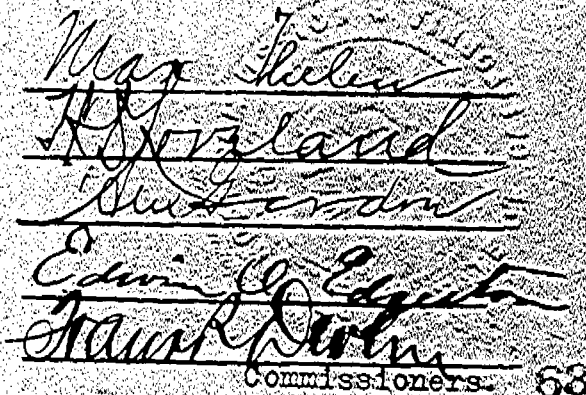 Max Thelen
H D Loveland
Alex Gordon
Edwin O. Edgerton
Frank R Devlin
Commissioners. 63